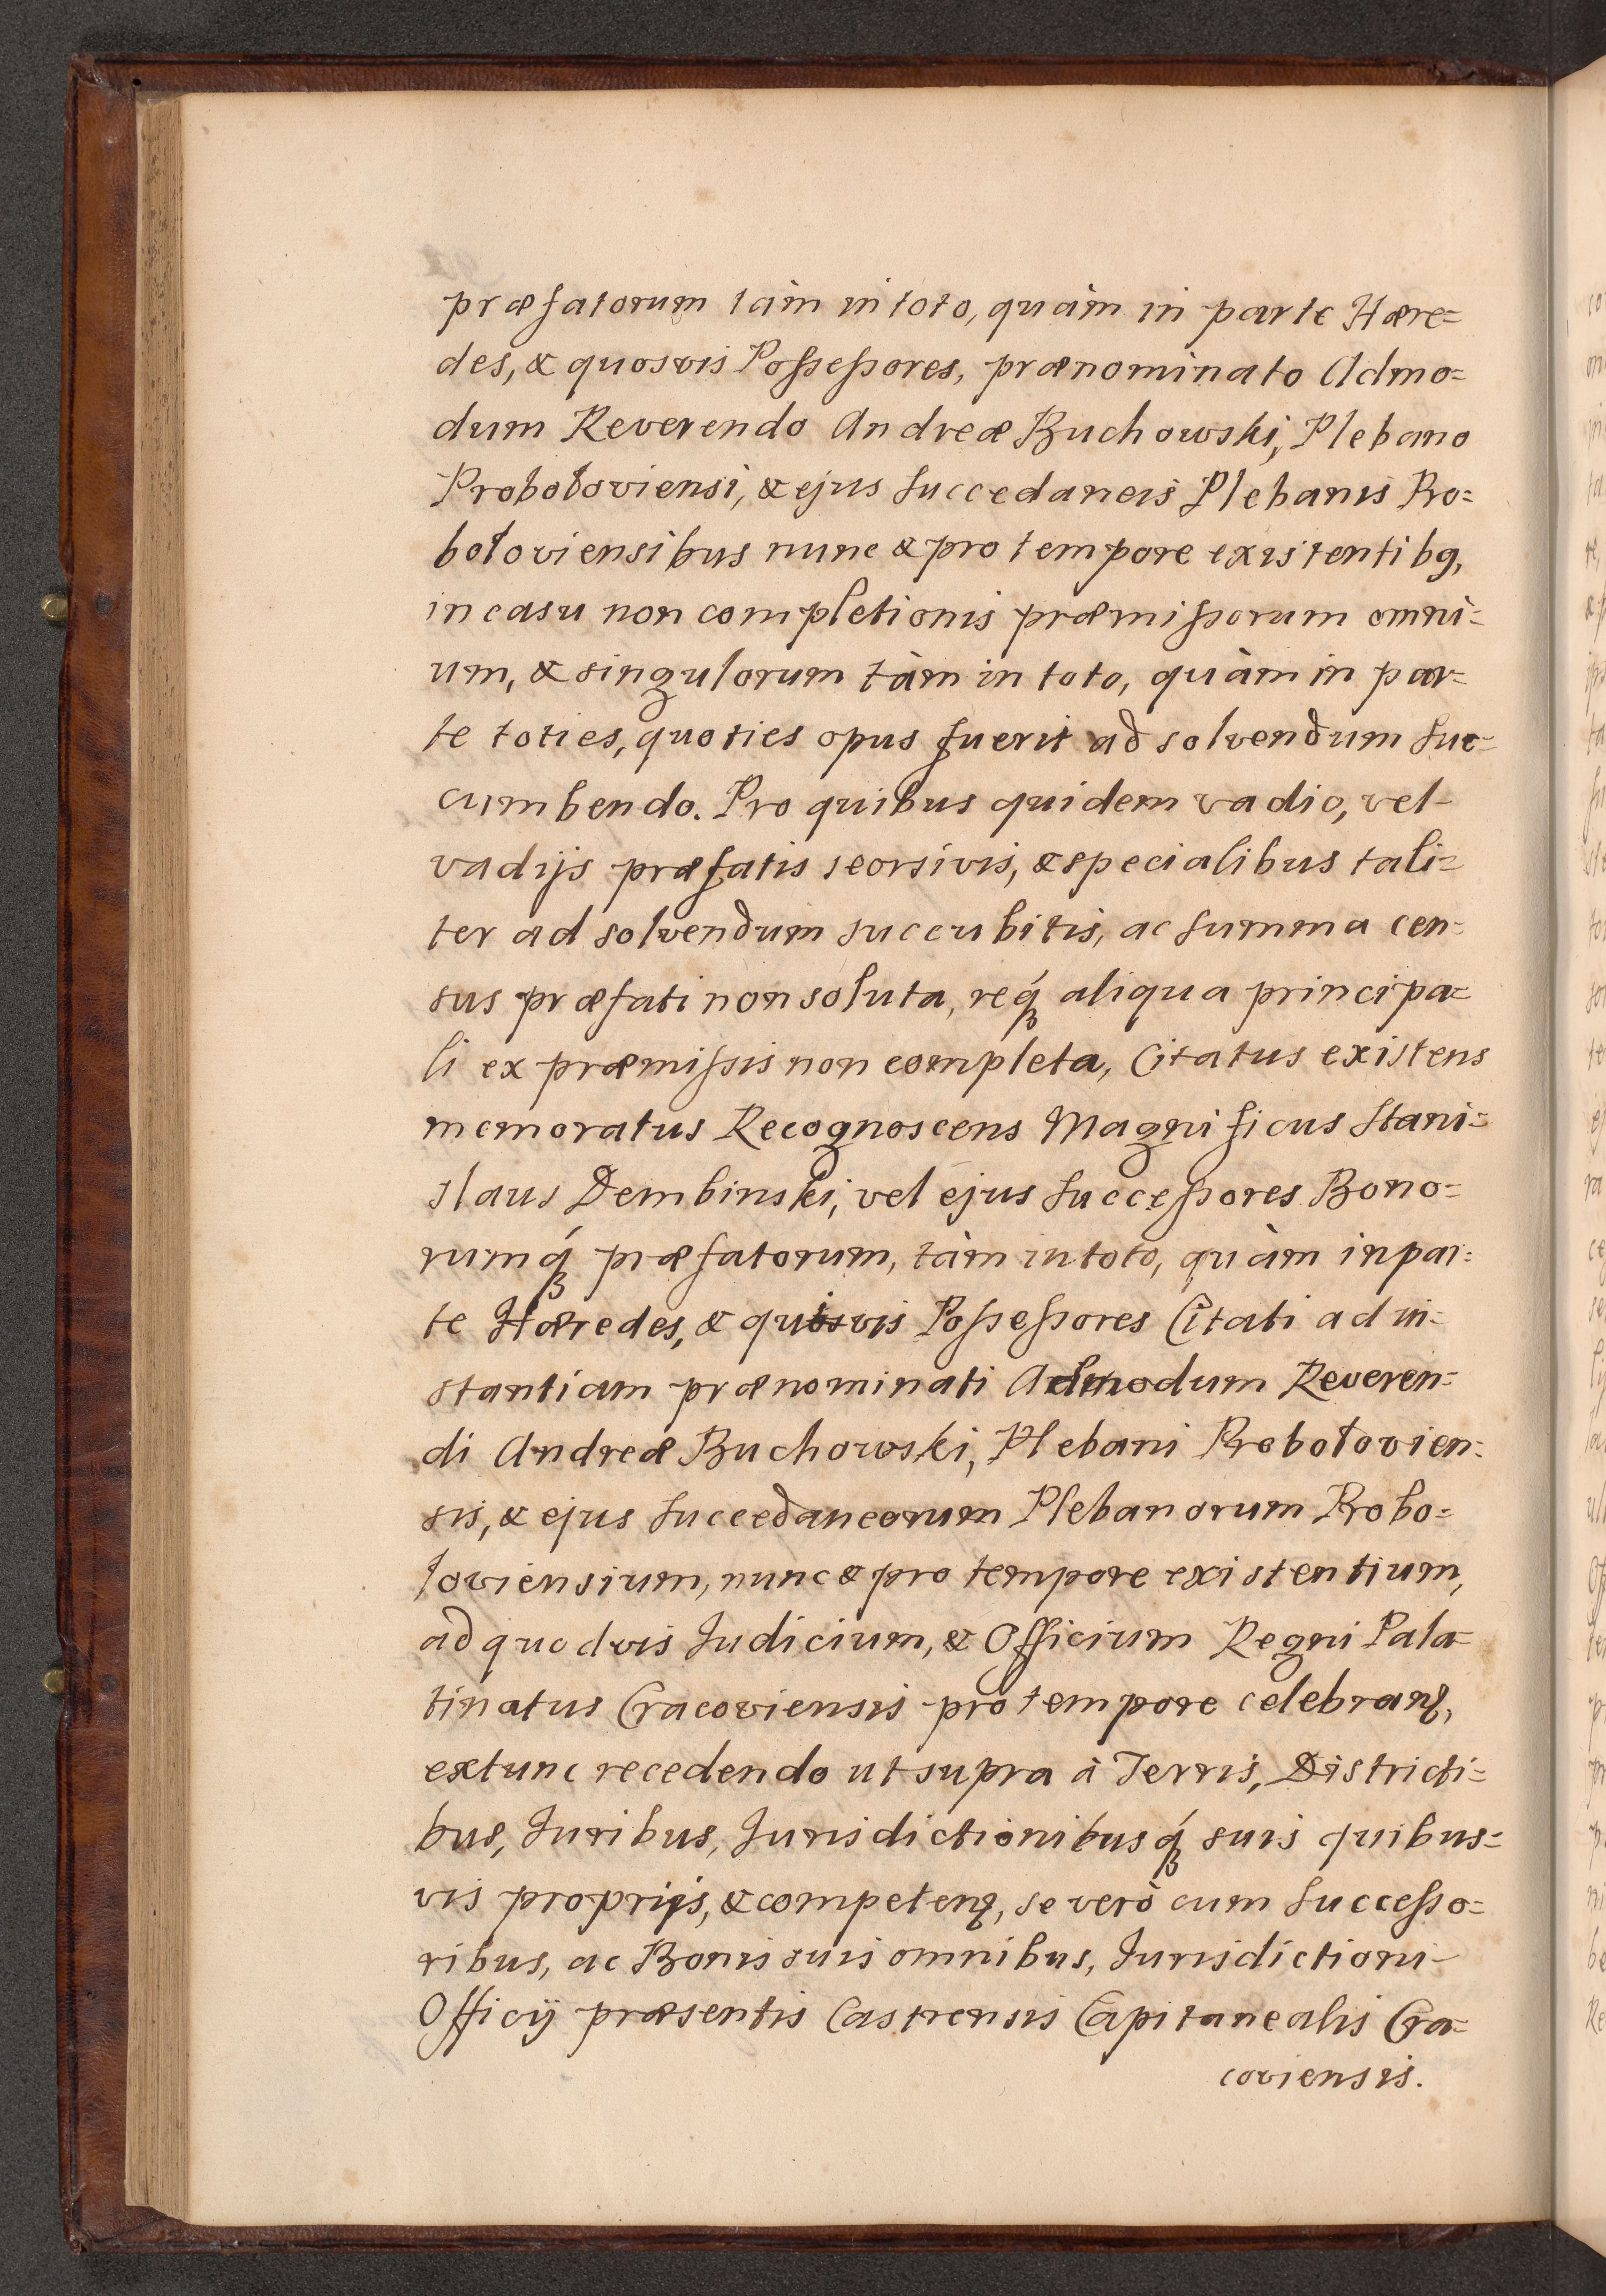 præfatorum tàm in toto, quàm in parte Hære=
des, & quosvis Possessores, prænominato Admo=
dum Reverendo Andreæ Buchowski, Plebano
Probołoviensi, & ejus Succedaneis Plebanis Pro=
bołoviensibus nunc & pro tempore existentibꝯ,
in casu non completionis præmissorum omni=
um, & singulorum tàm in toto, quàm in par=
te toties, quoties opus fuerit ad solvendum suc=
cumbendo. Pro quibus quidem vadio, vel
vadijs præfatis seorsivis, & specialibus tali=
ter ad solvendum succubitis, ac summa cen=
sus præfati non soluta, req́ꝫ aliqua principa=
li ex præmissis non completa, Citatus existens
memoratus Recognoscens Magnificus Stani=
slaus Dembinski, vel ejus Successores Bono=
rumq́ꝫ præfatorum, tàm in toto, quàm in par=
te Hæredes, & quisvis Possessores Citati ad in=
stantiam prænominati Admodum Reveren=
di Andreæ Buchowski, Plebani Probołovien=
sis, & ejus Succedaneorum Plebanorum Probo=
łoviensium, nunc & pro tempore existentium,
ad quodvis Iudicium, & Officium Regni Pala=
tinatus Cracoviensis pro tempore celebranꝗ,
extunc recedendo ut supra à Terris, Districti=
bus, Iuribus, Iurisdictionibusq́ꝫ suis quibus=
vis proprijs, & competenꝗ, se verò cum Successo=
ribus, ac Bonis suis omnibus, Iurisdictioni
Officij præsentis Castrensis Capitanealis Cra=
coviensis.